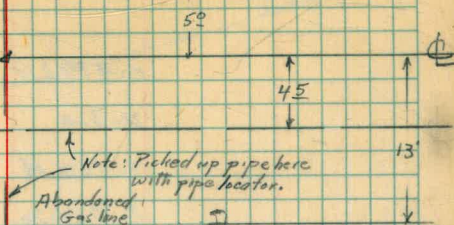 5º
℄
45
13'
Note: Picked up pipe here
with pipe locator.
Abandoned
Gas line